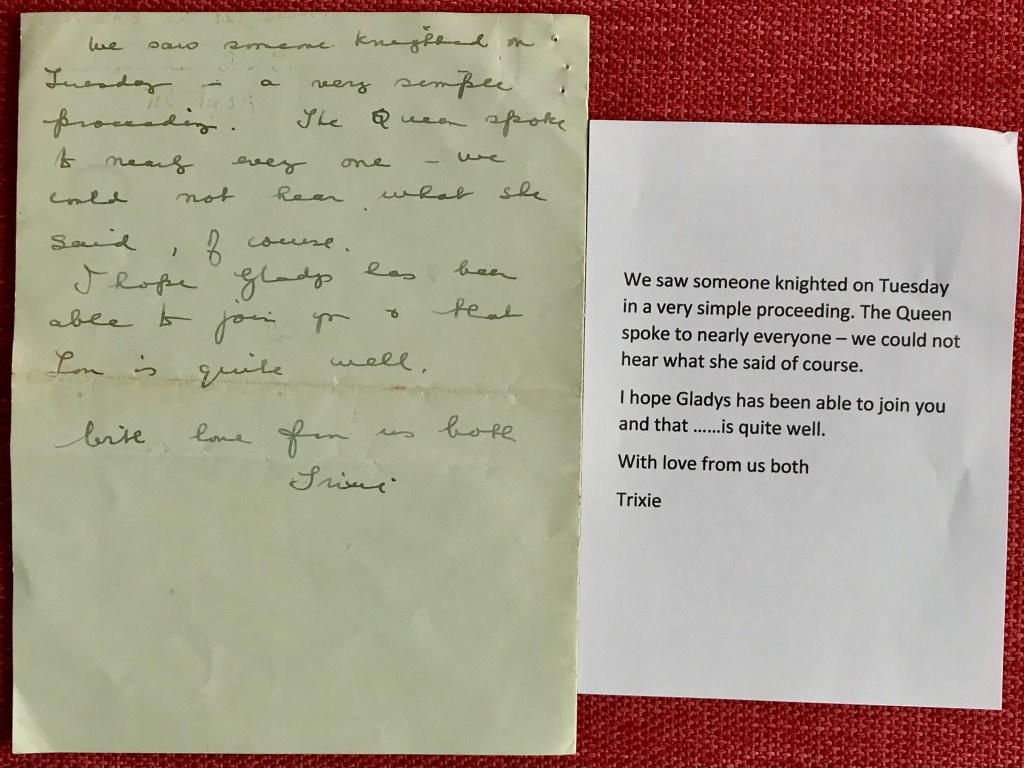 We saw someone knighted on
Tuesday – a very simple
proceeding. The Queen spoke
to nearly every one – we
could not hear what she
said, of course.
I hope Gladys has been
able to join you & that
is quite well.
With love from us both
Trixie
We saw someone knighted on Tuesday
in a very simple proceeding. The Queen
spoke to nearly everyone – we could not
hear what she said of course.
I hope Gladys has been able to join you
and that ......is quite well.
With love from us both
Trixie